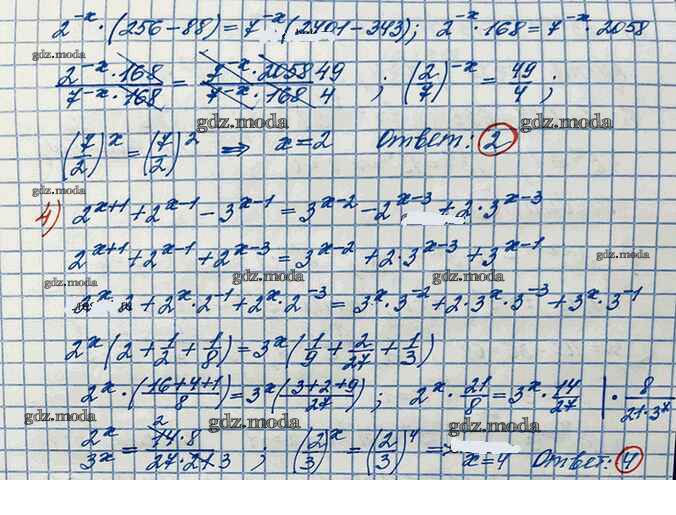 2^{-x} · (256 - 88) = 7^{-x} (2401 - 343); 2^{-x} · 168 = 7^{-x} · 2058
gdz.moda gdz.moda gdz.moda
\frac{2^{-x} · 168}{7^{-x} · 168} = \frac{7^{-x} · 2058 49}{7^{-x} · 168 4} ; (\frac{2}{7})^{-x} = \frac{49}{4} ;
gdz.moda gdz.moda
(\frac{7}{2})^x = (\frac{7}{2})^2 ⇒ x = 2 Ответ: 2
gdz.moda
4) 2^{x+1} + 2^{x-1} - 3^{x-1} = 3^{x-2} - 2^{x-3} + 2·3^{x-3}
gdz.moda gdz.moda
2^{x+1} + 2^{x-1} + 2^{x-3} = 3^{x-2} + 2·3^{x-3} + 3^{x-1}
gdz.moda gdz.moda gdz.moda gdz.moda
2^x · 2 + 2^x · 2^{-1} + 2^x · 2^{-3} = 3^x · 3^{-2} + 2·3^x · 3^{-3} + 3^x · 3^{-1}
2^x (2 + \frac{1}{2} + \frac{1}{8}) = 3^x (\frac{1}{9} + \frac{2}{27} + \frac{1}{3})
2^x · (\frac{16+4+1}{8}) = 3^x (\frac{3+2+9}{27}) ; 2^x · \frac{21}{8} = 3^x · \frac{14}{27} | · \frac{8}{21·3^x}
gdz.moda gdz.moda gdz.moda
\frac{2^x}{3^x} = \frac{2 14·8}{27·21 3} ; (\frac{2}{3})^x = (\frac{2}{3})^4 ⇒ x = 4 Ответ: 4